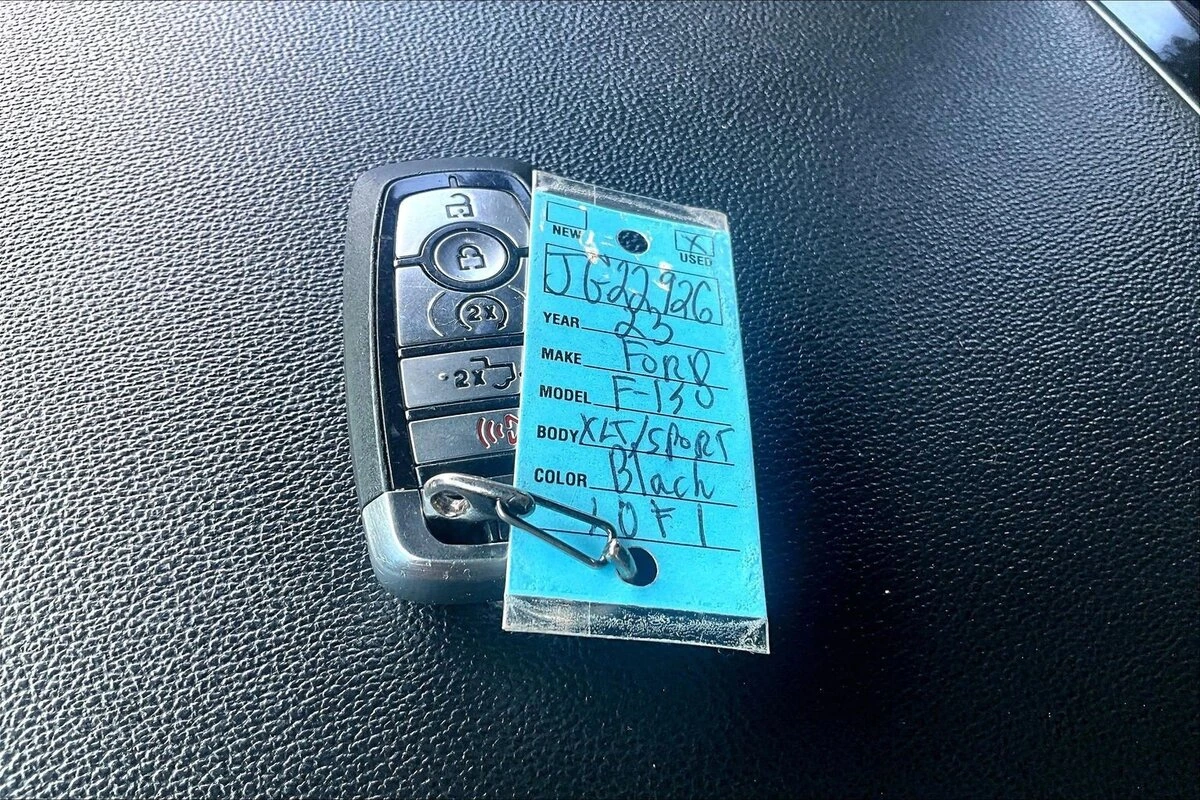 NEW
X
USED
JG22926
YEAR 23
MAKE Ford
MODEL F-150
BODY XLT/SPORT
COLOR Black
1 OF 1
2x
2x